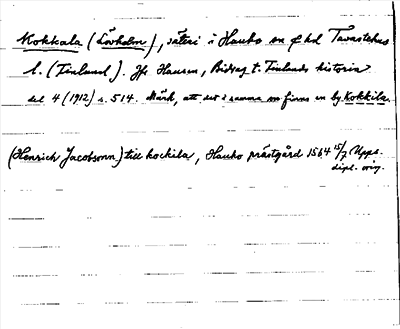 Kokkala (Lövholm), säteri i Hauho sn f hd Tavastehus
l. (Finland). Jfr Hausen, Bidrag t. Finlands historia
del 4 (1912) s. 514. Märk, att det i samma sn finns en by Kokkila.
(Henrich Jacobsonn) till kockila, Hauho prästgård 1564 15/7 Upps.
dipl. orig.